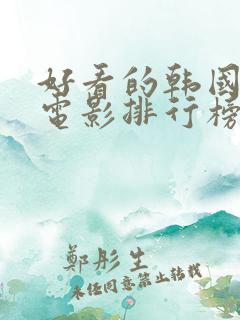 好看的韩国
电影排行榜
鄭彤生
未经同意禁止转载